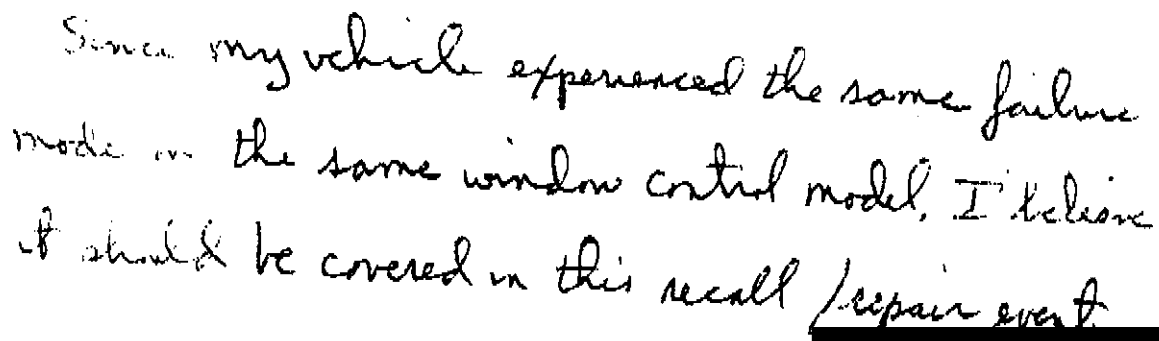 Since my vehicle experienced the same failure
mode in the same window control model, I believe
it should be covered in this recall / repair event.